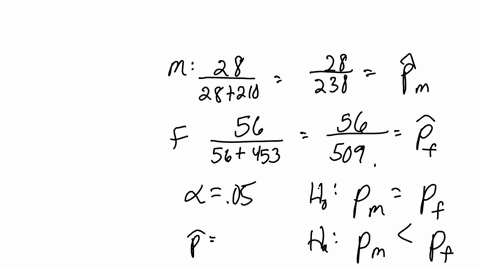 m: 28/(28+210) = 28/238 = p̂m
F 56/(56+453) = 56/509. = p̂f
α=.05 H₀: pm = pf
p̂ = Ha: pm < pf